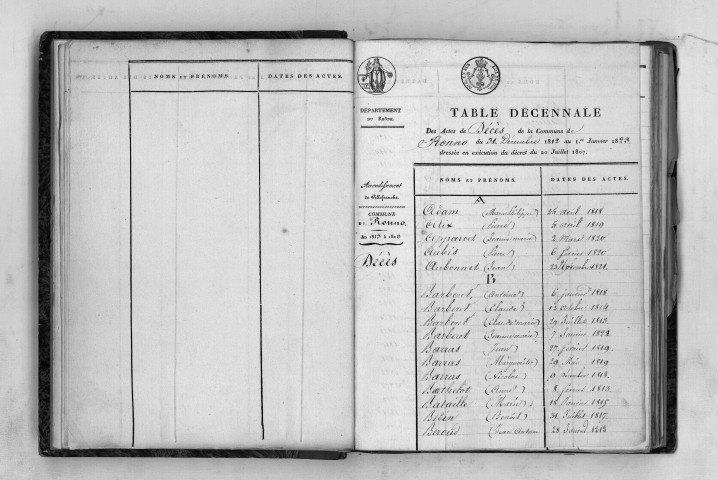 NOMS ET PRÉNOMS. DATES DES ACTES.
DÉPARTEMENT
DU RHÔNE.
Arrondissement
de Villefranche.
COMMUNE
de Ronno.
An 1813 à 1823
Décès
TABLE DÉCENNALE
Des Actes de Décès de la Commune de
Ronno du 31 Décembre 1812 au 1.er Janvier 1823
dressée en exécution du décret du 20 Juillet 1807.
NOMS ET PRÉNOMS. DATES DES ACTES.
A
Adam (Marie Philippe) 26 avril 1818
Alix (Pierre) 5 avril 1819
Apparcel (Jeanne marie) 2 Mars 1820
Aubis (Pierre) 6 février 1820
Aubonnet (Jean) 23 Novembre 1821
B
Barberet (Antoine) 6 janvier 1818
Barberet (Claude) octobre 1814
Barberet (Claude marie) 29 Juillet 1813
Barberet (Jeanne marie) 7 Janvier 1822
Barras (Jean) 27 février 1819
Barras (Marguerite) 29 Mai 1819
Barras (Nicolas) 9 1818
Barthelot (Anne) 8 février 1813
Bataille (Marie) Janvier 1815
(Benoit) 31 Juillet 1817
Beroud (Jean Antoine 28 1813